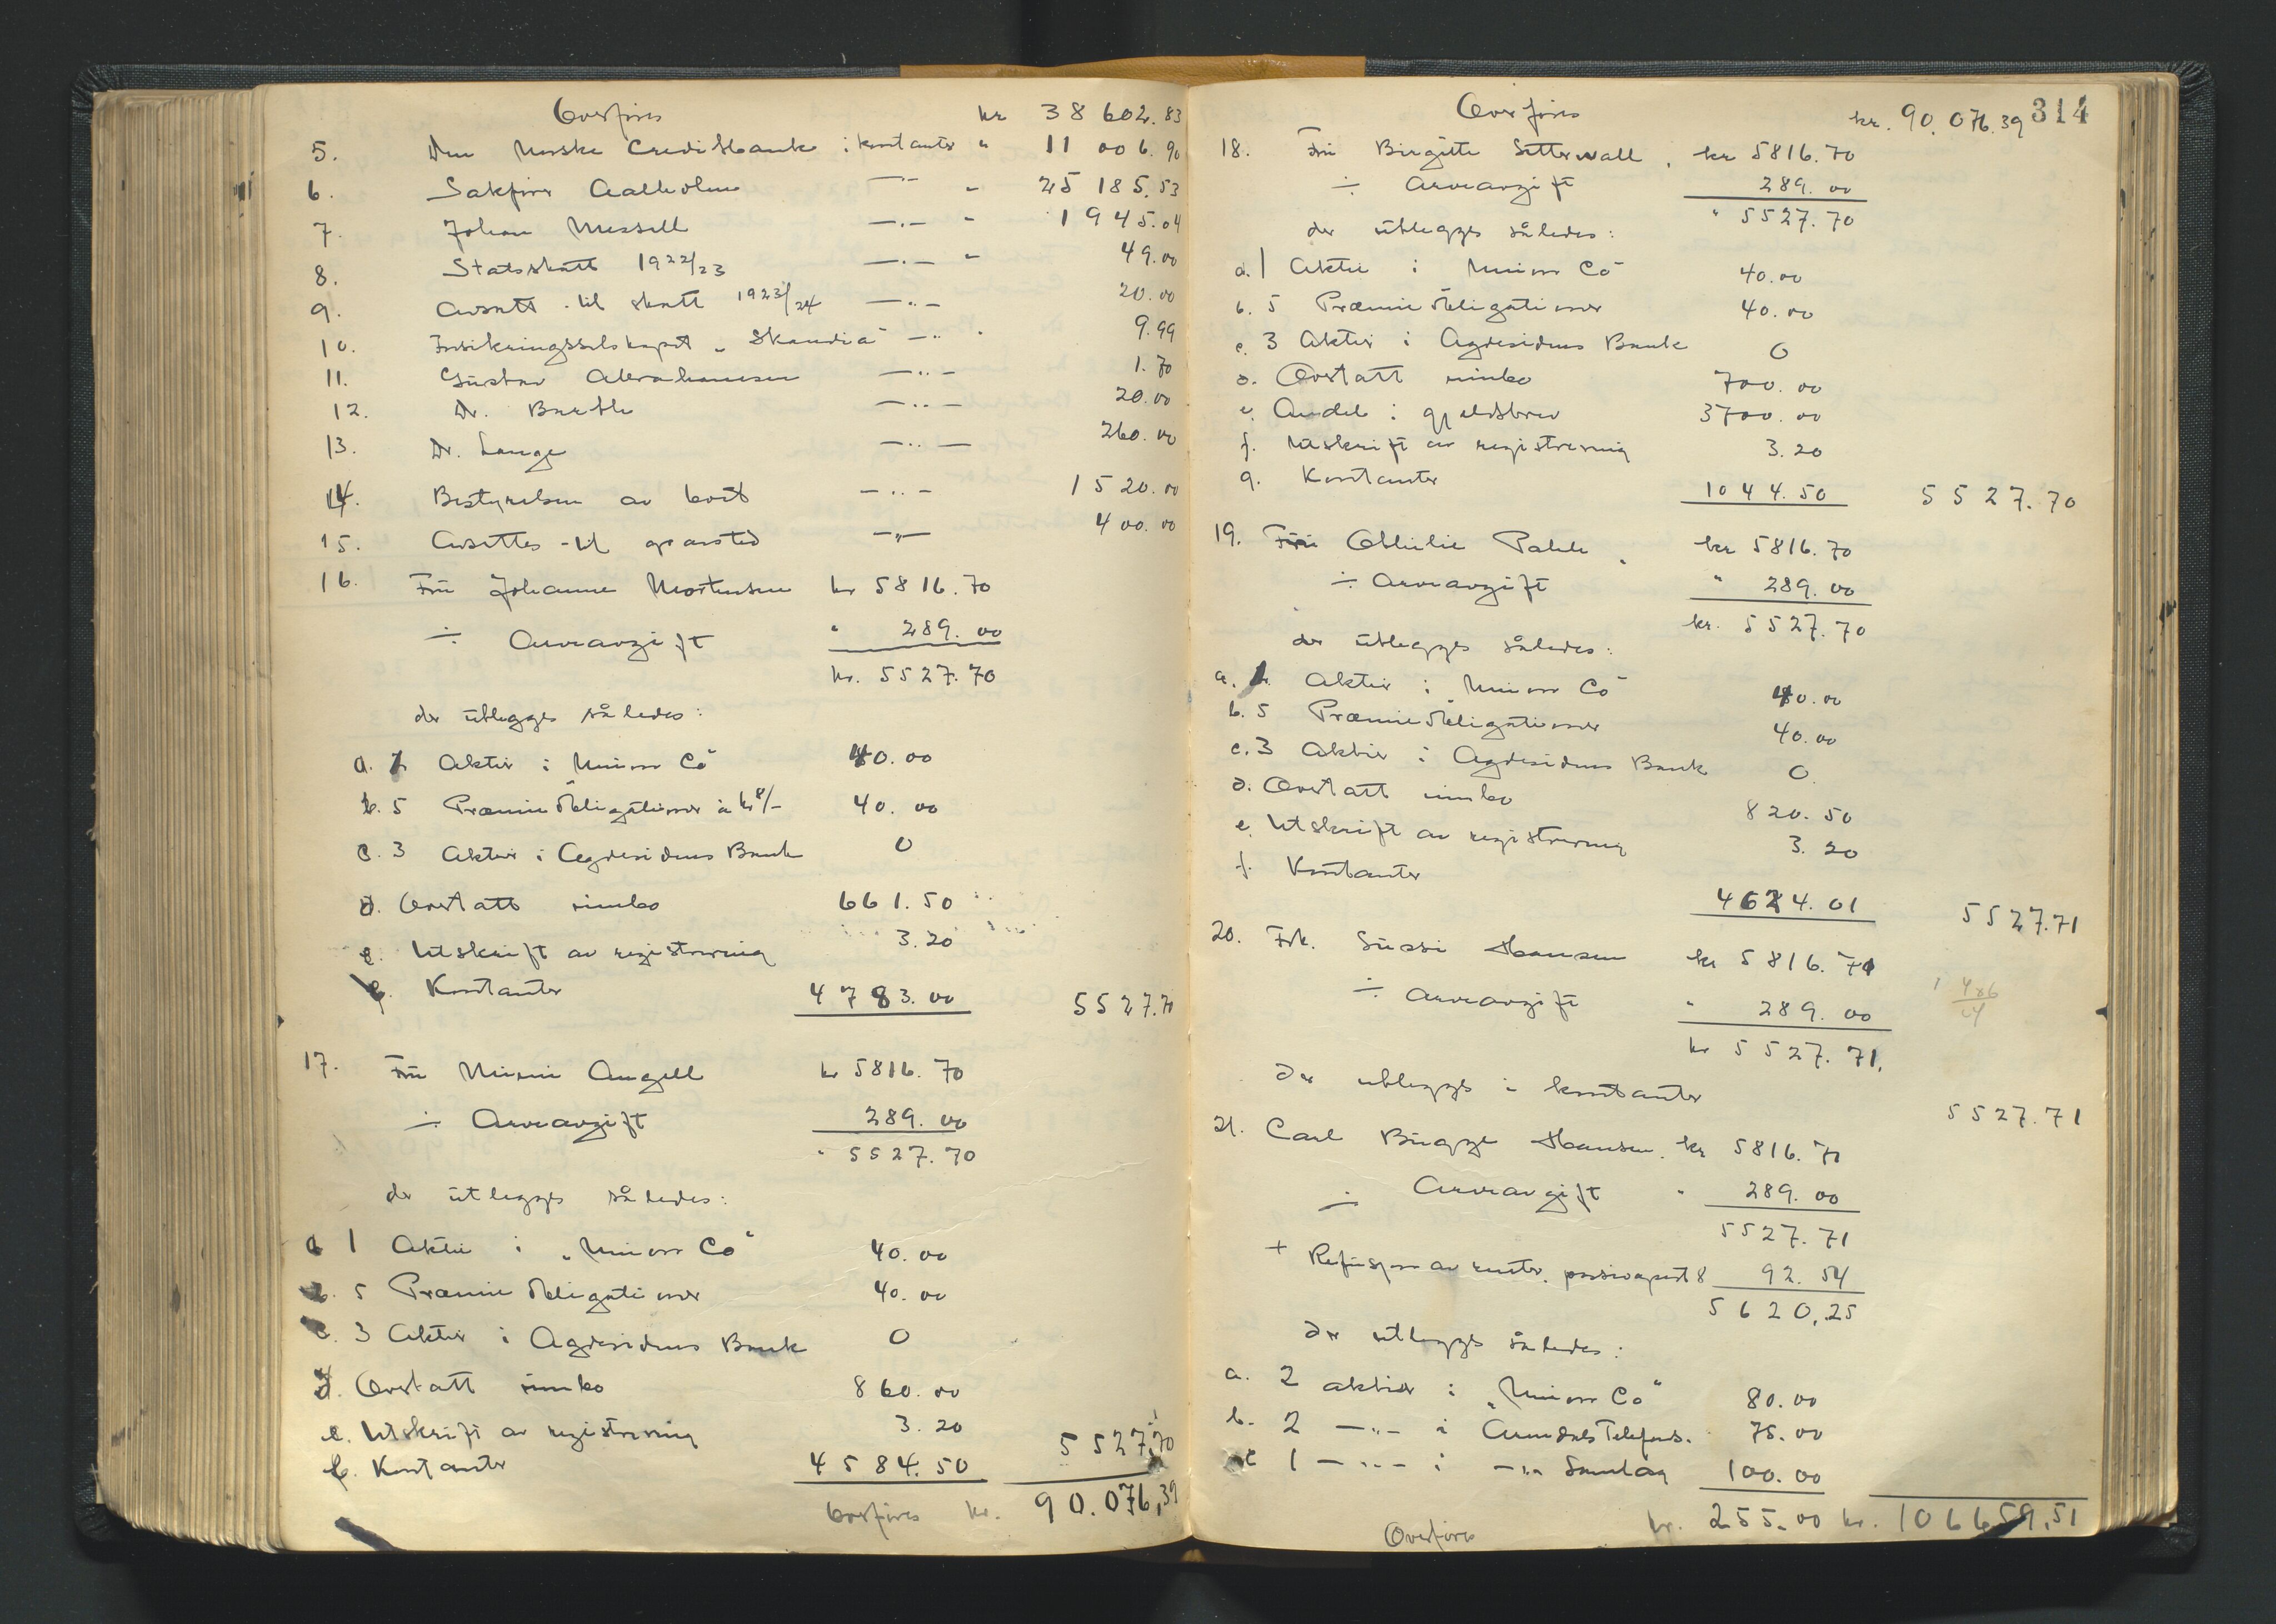 Overføres kr 38 602.83
5. Den Norske Creditbank i kontanter " 11 006.90
6. Sakfører Aalholm —"— " 25 185.53
7. Johan Messell —"— " 1945.04
8. Statsskatt 1922/23 —"— " 49.00
9. Avsatt til skatt 1923/24 —"— 20.00
10. Forsikringsselskapet „Skandia" —"— " 9.99
11. Gustav Abrahamsen —"— 1.70
12. Dr. Barth —"— 20.00
13. Dr. Lange —"— 260.00
14. Bestyrelsen av boet —"— 1520.00
15. Avsettes til gravsted —"— 400.00
16. Fru Johanne Mortensen kr 5816.70
÷ Arveavgift " 289.00
kr. 5527.70
der utlegges således:
a. 1 Aktie i Union Co" 40.00
b. 5 Præmieobligationer à kr 8/- 40.00
c. 3 Aktier i Agdesidens Bank 0
d. Overtatt innbo 661.50
e. Utskrift av registrering 3.20
f. Kontanter 4783.00 5527.70
17. Fru Mimi Angell kr 5816.70
÷ Arveavgift 289.00
" 5527.70
der utlegges således:
a 1 Aktie i „Union Co" 40.00
b. 5 Præmieobligationer 40.00
c. 3 Aktier i Agdesidens Bank 0
d. Overtatt innbo 860.00
e. Utskrift av registrering 3.20
f. Kontanter 4584.50 5527.70
Overføres kr. 90.076,39
314
Overføres kr. 90.076.39
18. Fru Birgitte Setterwall. kr 5816.70
÷ Arveavgift 289.00
" 5527.70
der utlegges således:
a. 1 Aktie i Union Co" 40.00
b. 5 Præmieobligationer 40.00
c. 3 Aktier i Agdesidens Bank 0
d. Overtatt innbo 700.00
e. Andel i gjeldsbrev 3700.00
f. Utskrift av registrering 3.20
g. Kontanter 1044.50 5527.70
19. Fru Othilie Palle. kr 5816.70
÷ Arveavgift " 289.00
kr. 5527.70
der utlegges således:
a. 1 Aktie i Union Co" 40.00
b. 5 Præmieobligationer 40.00
c. 3 Aktier i Agdesidens Bank 0
d. Overtatt innbo 820.50
e. Utskrift av registrering 3.20
f. Kontanter 4624.01 5527.71
20. Frk. Sussi Hansen kr 5816.71
÷ Arveavgift " 289.00
kr 5527.71.
der utlegges i kontanter 5527.71
21. Carl Bugge Hansen. kr 5816.71
÷ Arveavgift " 289.00
5527.71
+ Refusjon av renter, passivapost 8 92.54
5620,25
der utlegges således:
a. 2 aktier i „Union Co" 80.00
b. 2 —"— i Arendals Telefons. 75.00
c 1 —"— i —"— Samlag 100.00
Overføres kr. 255.00 kr. 106659,51